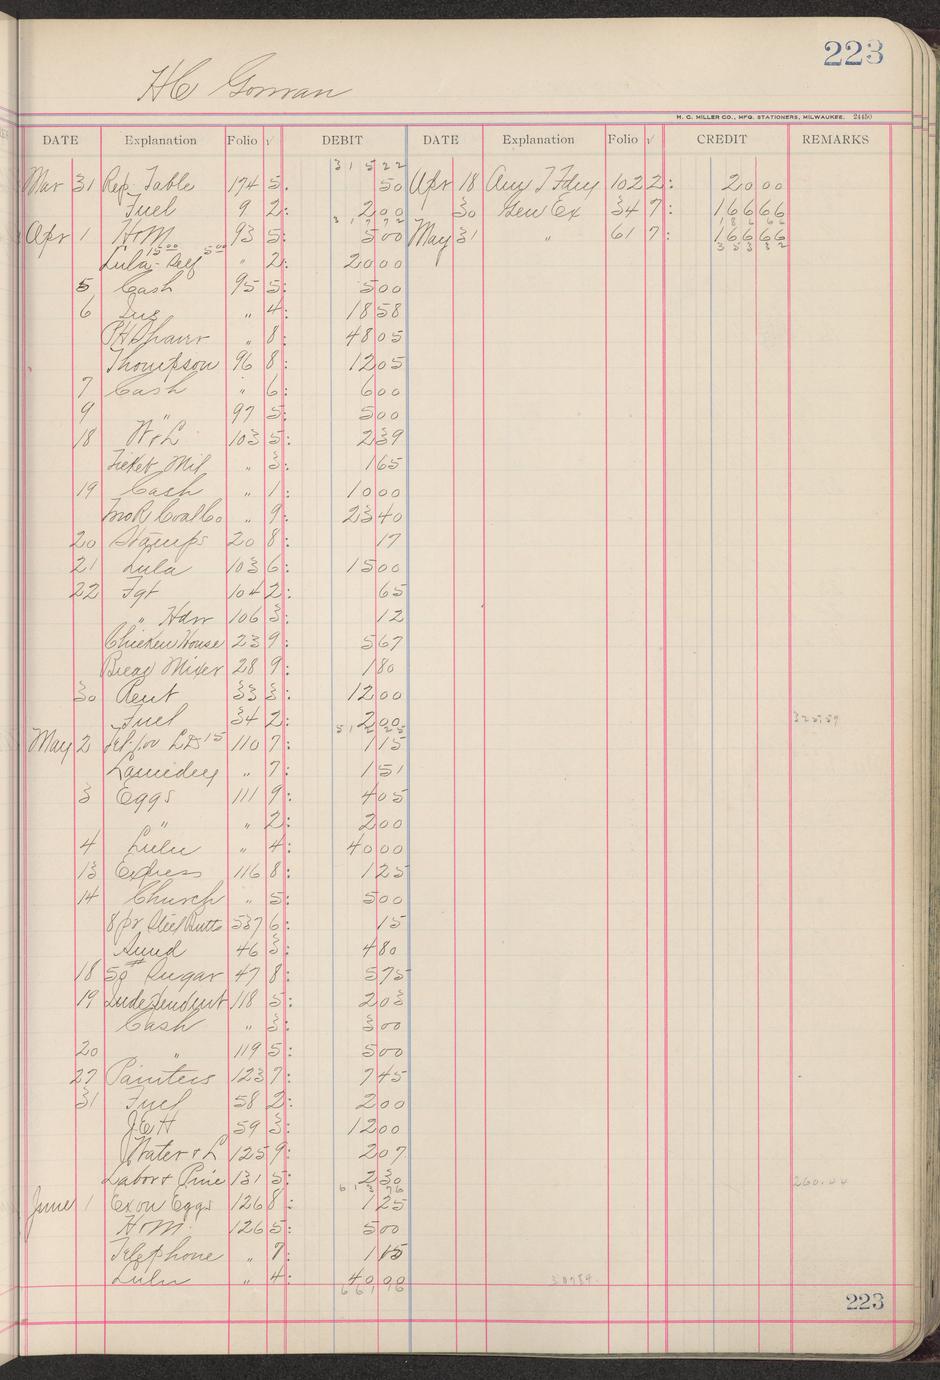 223
H C Gowan
H. C. MILLER CO., MFG. STATIONERS, MILWAUKEE. 24450
DATE Explanation Folio √ DEBIT DATE Explanation Folio √ CREDIT REMARKS
3 1 5 22
Mar 31 Rep. Table 174 5. 50 Apr 18 Aug T Fdry 102 2: 20 00
Fuel 9 2: 2 00 30 Gen Ex 34 7: 166 66
Apr 1 H M 93 5: 5 00 May 31 " 61 7: 166 66
Lula 15 00 Self 5 00 " 2: 20 00
353 32
5 Cash 95 5: 5 00
6 Ins " 4: 18 58
P H Shaur " 8: 48 05
Thompson 96 8: 12 05
7 Cash " 6: 6 00
9 " 97 5: 5 00
18 W & L 103 5: 2 39
Ticket Mil " 3: 1 65
19 Cash " 1: 10 00
Coal Co " 9: 23 40
20 Stamps 20 8: 17
21 Lula 103 6: 15 00
22 Fgt 104 2: 65
" Hdw 106 3: 12
Chicken House 23 9: 5 67
Bread Mixer 28 9: 1 80
30 Rent 33 3: 12 00
Fuel 34 2: 2 00
May 2 110 7: 1 15
Laundry " 7: 1 51
3 Eggs 111 9: 4 05
" " 2: 2 00
4 Lulu " 4: 40 00
13 Express 116 8: 1 25
14 Church " 5: 5 00
8 pr Steel Butts 537 6: 15
46 3: 4 80
18 50# Sugar 47 8: 5 75
19 Independent 118 5: 2 03
Cash " 3: 3 00
20 " 119 5: 5 00
27 Painters 123 7: 7 45
31 Fuel 58 2: 2 00
59 3: 12 00
Water & L 125 9: 2 07
Labor & Pine 131 5: 2 30 260.44
June 1 Ex on Eggs 126 8: 1 25
H M. 126 5: 5 00
Telephone " 7: 1 15
Lulu " 4: 40 00
223